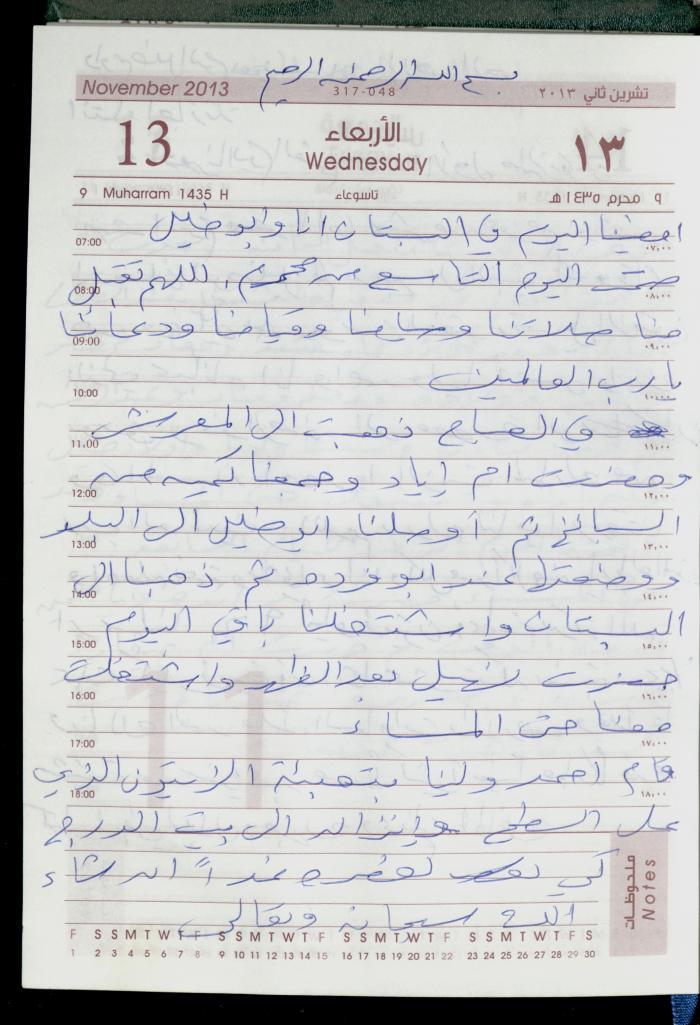 بسم الله الرحمن الرحيم
November 2013 317-048 تشرين ثاني ٢٠١٣
13 الأربعاء ١٣
Wednesday
9 Muharram 1435 H تاسوعاء ٩ محرم ١٤٣٥هـ
امضينا اليوم في البستان انا وابو خليل
07:00 ٠٧,٠٠
صمت اليوم التاسع من محرم . اللهم تقبل
08:00 ٠٨,٠٠
منا صلاتنا وصيامنا وقيامنا ودعائنا
09:00 ٠٩,٠٠
يا رب العالمين
10:00 ١٠,٠٠
في الصباح ذهبت الى المفرش
11:00 ١١,٠٠
وحضرت ام اياد وجمعنا كميه من
12:00 ١٢,٠٠
السبانخ ثم أوصلنا ابو خليل الى البلد
13:00 ١٣,٠٠
ووضعتها عند ابو فرده ثم ذهبنا ال
14:00 ١٤,٠٠
البستان واشتغلنا باقي اليوم
15:00 ١٥,٠٠
حضرت نهيل بعد الظهر واشتغلت
16:00 ١٦,٠٠
معنا حتى المساء
17:00 ١٧,٠٠
قام احمد ولينا بتعبئة الزيتون الذي
18:00 ١٨,٠٠
على السطح وانزاله الى بيت الدرج
كي نعصره غداً ان شاء
الله سبحانه وتعالى
ملحوظات
Notes
F S S M T W T F S S M T W T F S S M T W T F S S M T W T F S
1 2 3 4 5 6 7 8 9 10 11 12 13 14 15 16 17 18 19 20 21 22 23 24 25 26 27 28 29 30